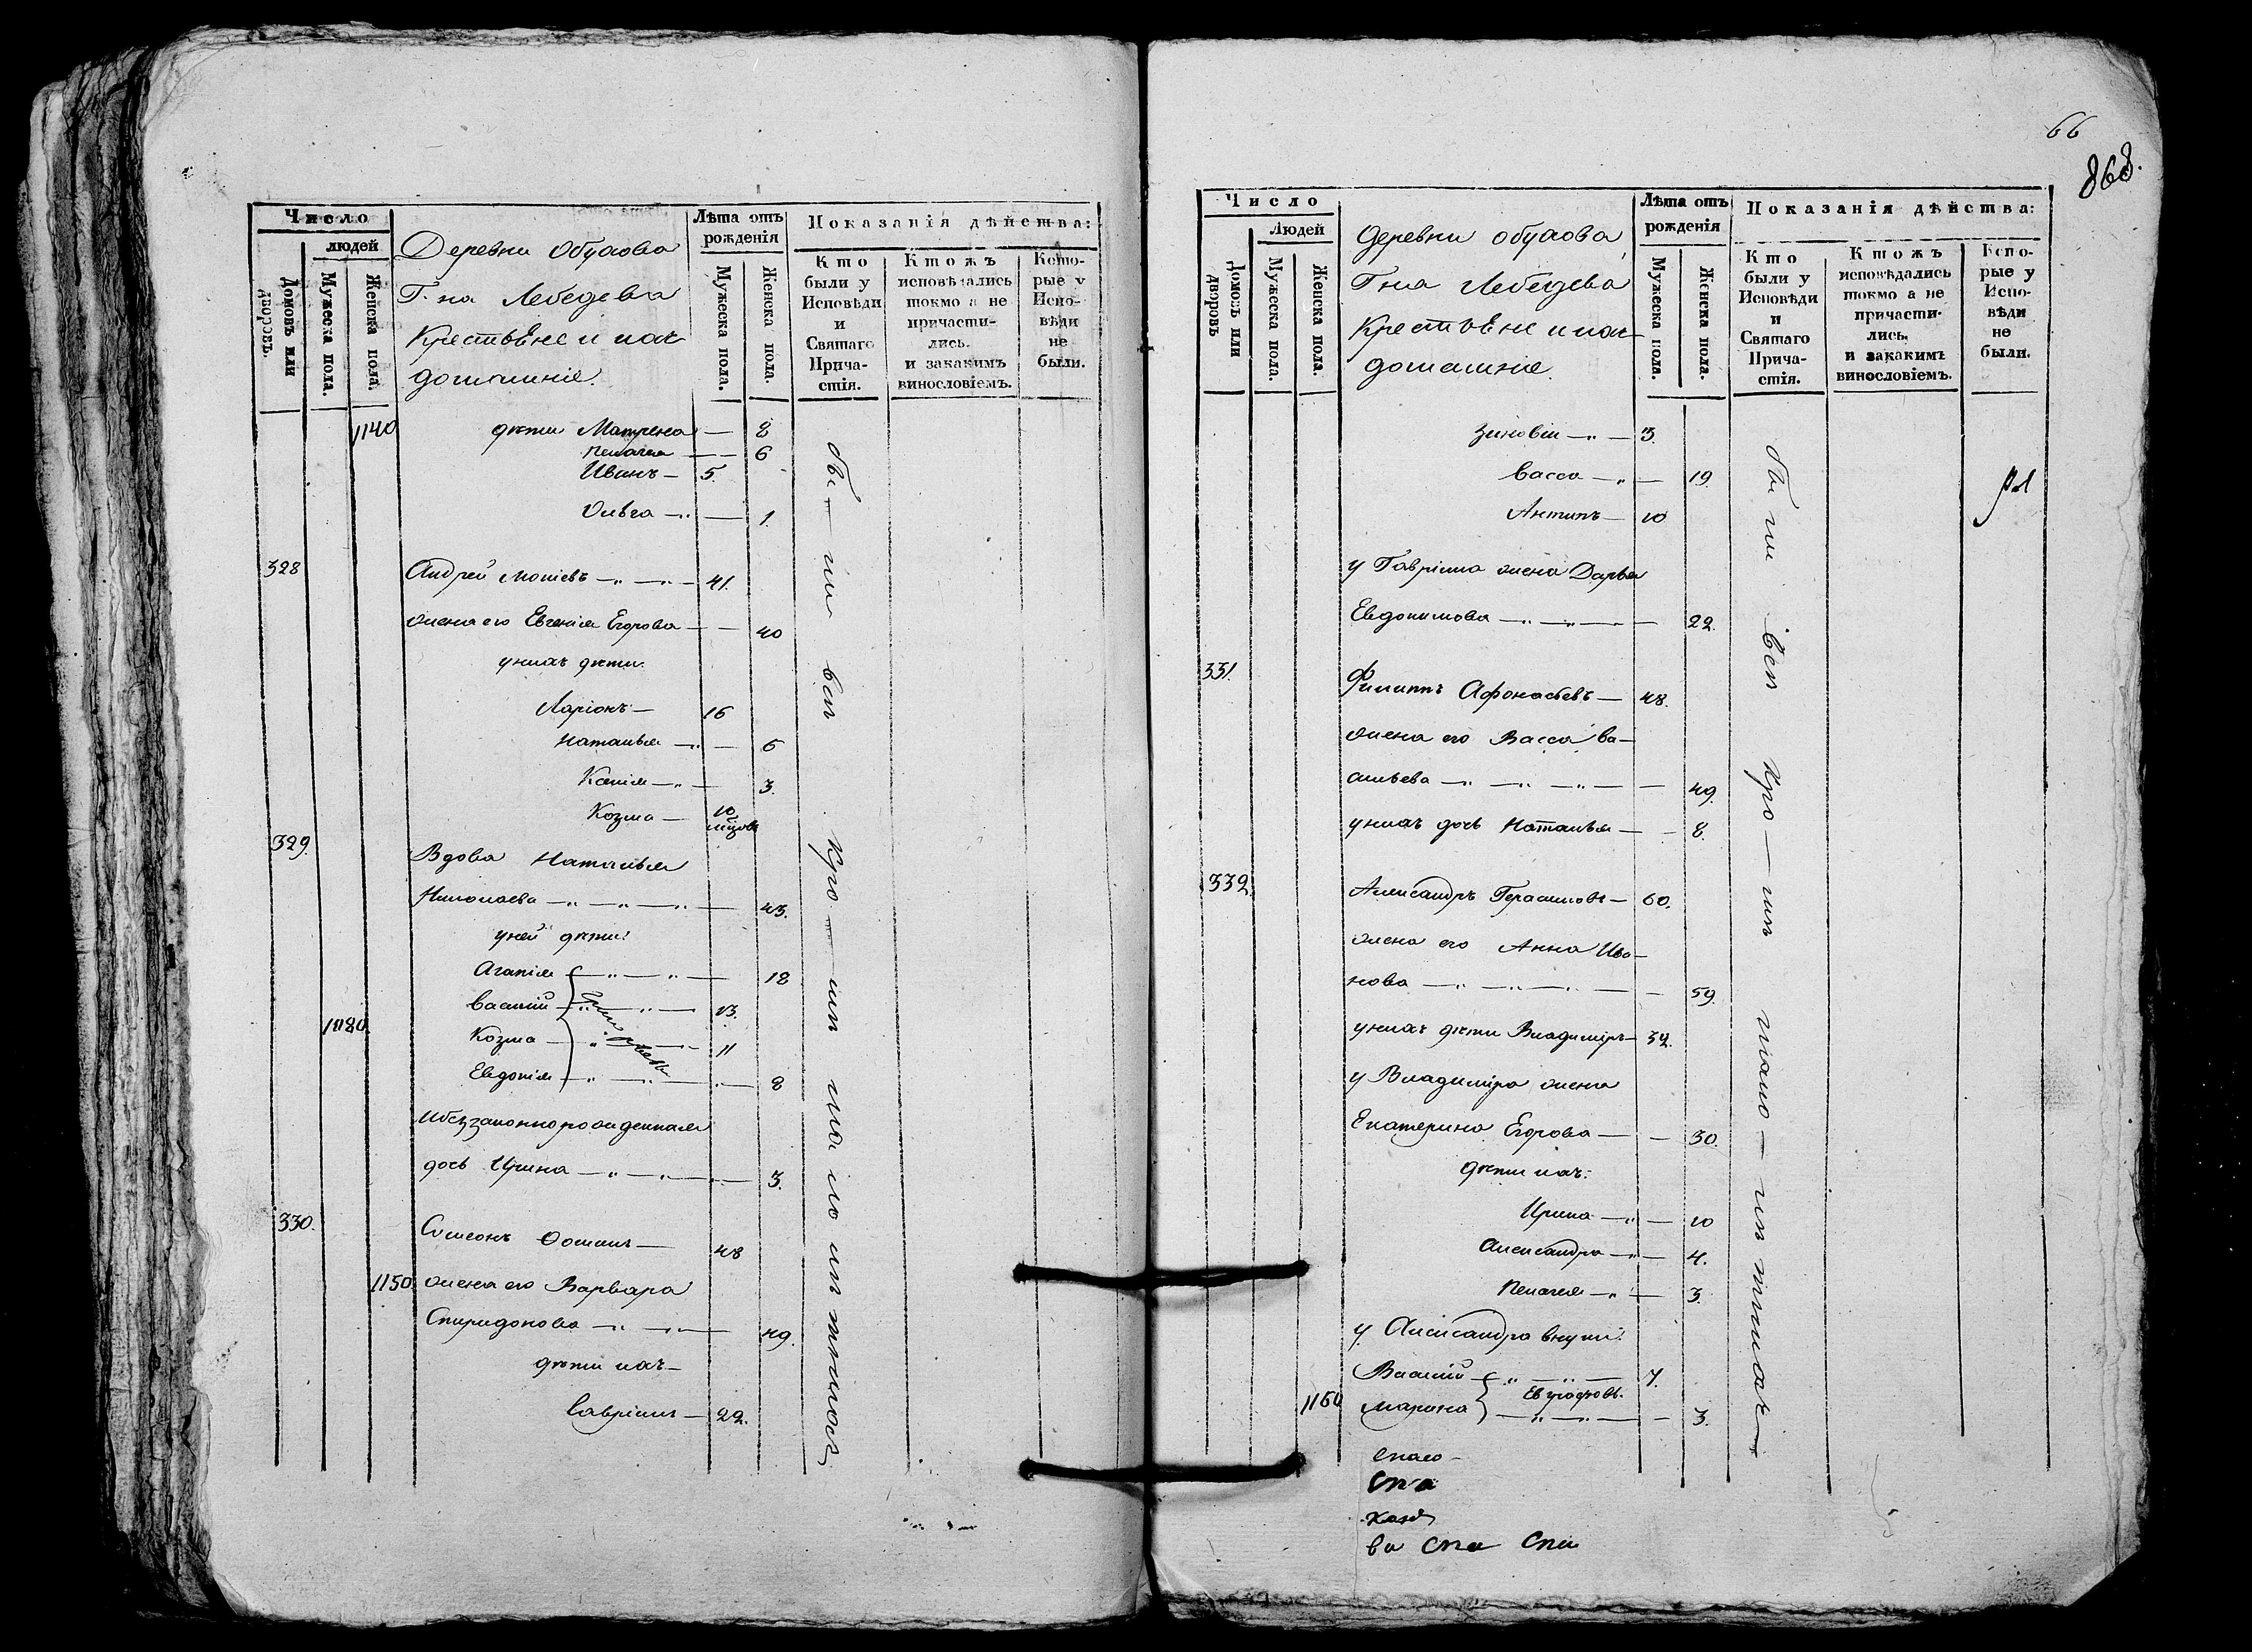 Число
людей
Домовъ или дворовъ.
Мужеска пола.
Женска пола.
Деревни Обухова
Г-на Лебедева
Крестьяне и ихъ
домашніе.
Лѣта отъ рожденія
Мужеска пола.
Женска пола.
Показанія дѣйства:
Кто были у Исповѣди и Святаго Причастія.
Ктожъ исповѣдались токмо а не причастились. и закакимъ винословіемъ.
Которые у Исповѣди не были.
1140 дѣти Матрена — 8
Пелагея — — 6
Иванъ — 5.
Ольга — „ — 1.
328 Андрей — „ — „ — 41.
жена его Евгенія Егорова — — 40
унихъ дѣти.
Ларіонъ — 16
Наталья — „ — 6
Ксенія — „ — 3.
Козма — 10
329. Вдова Наталья
Николаева — „ — „ — „ — 43.
уней дѣти:
Агапія — „ — „ — 18
Василій — „ — „ — 13.
1180. Козма — „ — 11
Евдокія — „ — „ — „ — 8
Ибеззаконнорожденная
дочь Ирина — „ — „ — 3.
330. Симеонъ Ѳоминъ — 48
1150. жена его Варвара
Спиридонова — „ — „ — 49.
дѣти ихъ —
Гавріилъ — 22.
66
868.
Число
Людей
Домовъ или дворовъ
Мужеска пола.
Женска пола.
Деревни Обухова
Г-на Лебедева
Крестьяне и ихъ
домашніе.
Лѣта отъ рожденія
Мужеска пола.
Женска пола.
Показанія дѣйства:
Кто были у Исповѣди и Святаго Причастія.
Ктожъ исповѣдались токмо а не причастились. и закакимъ винословіемъ.
Которые у Исповѣди не были.
Зиновій — „ — 3.
Васса — „ — 19.
Антипъ — 10
у Гавріила жена Дарья
Евдокимова — „ — „ — 22.
331. Филиппъ Афонасьевъ — 48.
жена его Васса Ва-
сильева — „ — „ — „ — 49.
унихъ дочь Наталья — — 8.
332. Александръ Герасимовъ — 60.
жена его Анна Ива-
нова — „ — „ — „ — 59.
унихъ дѣти Владиміръ — 32.
у Владиміра жена
Екатерина Егорова — — 30.
дѣти ихъ:
Ирина — „ — 10
Александра — „ — 4.
Пелагея — „ — 3.
у Александра внуки:
Василій — „ — „ — 7.
Евграфовы.
1160 Марина — „ — „ — 3.
Спа
ва Спа Спа